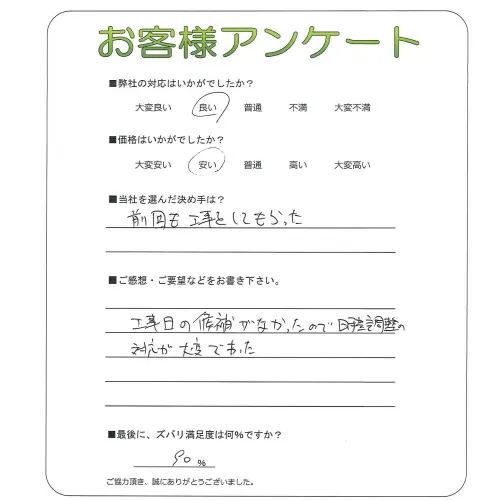 お客様アンケート
■弊社の対応はいかがでしたか?
大変良い 良い 普通 不満 大変不満
■価格はいかがでしたか?
大変安い 安い 普通 高い 大変高い
■当社を選んだ決め手は?
前回も工事をしてもらった
■ご感想・ご要望などをお書き下さい。
工事日の候補がなかったので日程調整の
対応が大変でした
■最後に、ズバリ満足度は何%ですか?
90%
ご協力頂き、誠にありがとうございました。